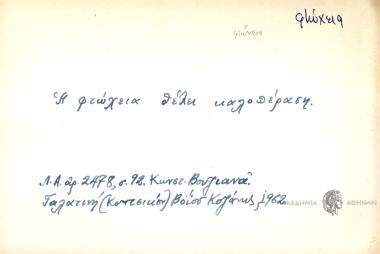 φτώχεια
φτώχεια
Ἡ φτώχεια θέλει καλοπέραση.
Λ.Α. ἀρ. 2478, σ. 92. Κωνστ. Βουζιανᾶ.
Γαλατινή (Κοντσικόν) Βοΐου Κοζάνης, 1962
ΑΚΑΔΗΜΙΑ ΑΘΗΝΩΝ